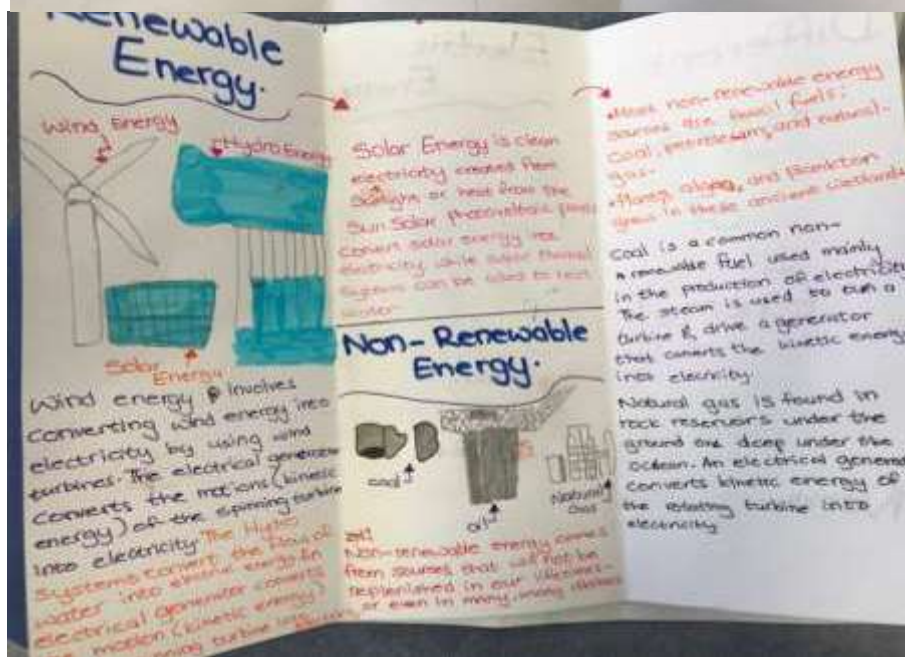 Renewable
Energy.
Wind Energy
Hydro Energy
Solar
Energy
Wind energy involves
converting wind energy into
electricity by using wind
turbines. The electrical generator
converts the motions (kinetic
energy) of the spinning turbine
into electricity. The Hydro
Systems convert the flow of
water into electric energy. An
electrical generator converts
the motion (kinetic energy)
spinning turbine into
Solar Energy is clean
electricity created from
sunlight or heat from the
Sun. Solar photovoltaic panels
convert solar energy into
electricity while solar thermal
systems can be used to heat
water.
Non-Renewable
Energy.
coal
oil
Natural
Gas
Non-renewable energy comes
from sources that will not be
replenished in our lifetimes-
or even in many, many
•Most non-renewable energy
sources are fossil fuels:
Coal, petroleum, and natural-
gas.
•Plants, algae, and plankton
grew in these ancient wetlands
Coal is a common non-
renewable fuel used mainly
in the production of electricity
The steam is used to turn a
turbine & drive a generator
that converts the kinetic energy
into elecricity.
Natural gas is found in
rock reservoirs under the
ground or deep under the
ocean. An electrical generat
converts kinetic energy of
the rotating turbine into
electricity